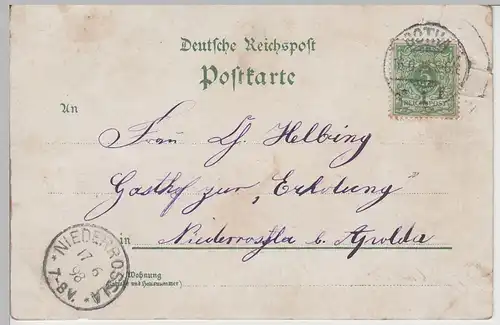 Deutsche Reichspost
Postkarte
An
Frau Th. Helbing
Gasthof zur „Erholung"
in Niederrossla b. Apolda
Wohnung
(Straße und Hausnummer)
GOTHA
5
NIEDERROSSLA
17
6
98